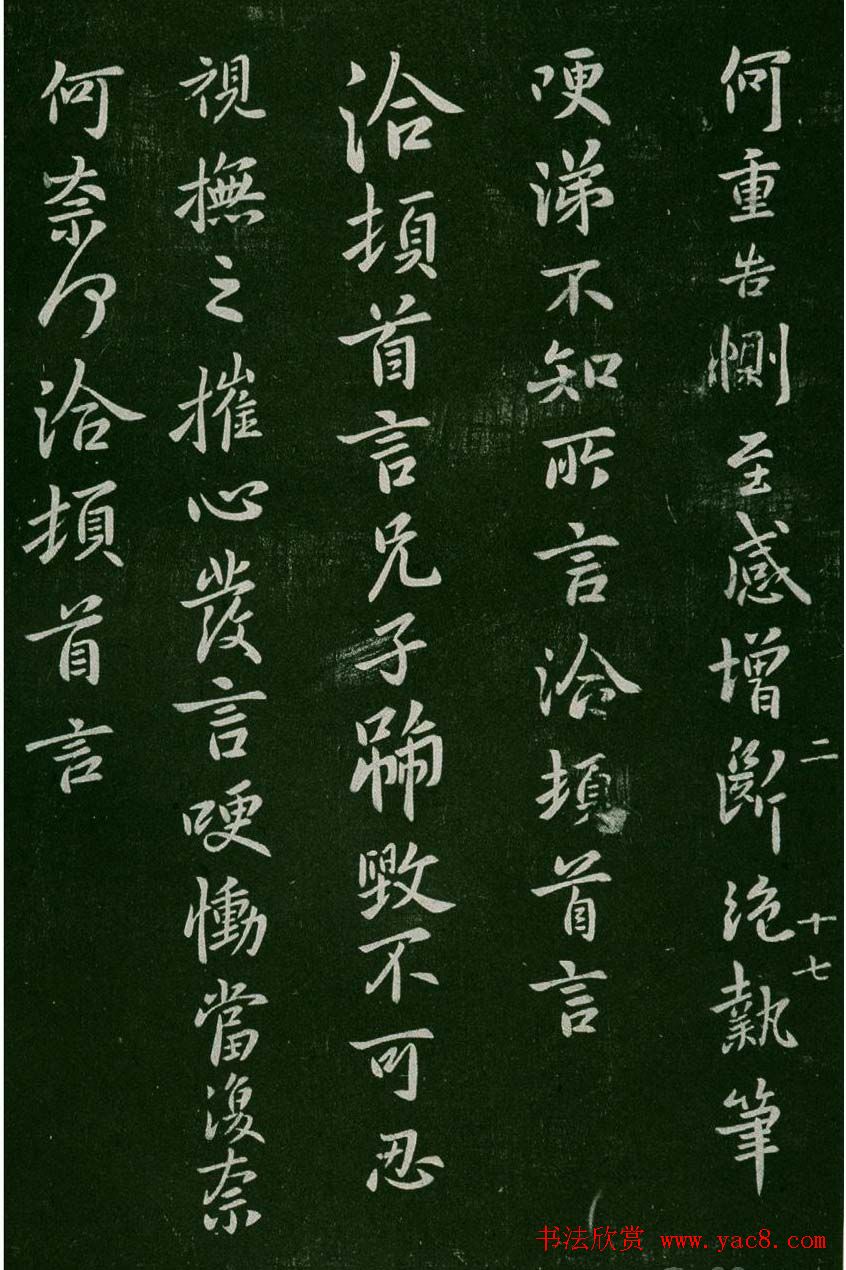 二 十七
何重告惻至感增斷絶執筆
哽涕不知所言洽頓首言
洽頓首言兄子號毀不可忍
視撫之摧心發言哽慟當復奈
何奈何洽頓首言
书法欣赏 www.yac8.com